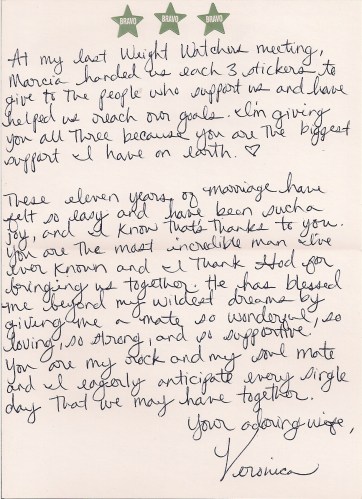 BRAVO BRAVO BRAVO
At my last Weight Watchers meeting,
Marcia handed us each 3 stickers to
give to the people who support us and have
helped us reach our goals. I'm giving
you all three because you are the biggest
support I have on earth. ♡
These eleven years of marriage have
felt so easy and have been such a
joy, and I know that's thanks to you.
You are the most incredible man I've
ever known and I thank God for
bringing us together. He has blessed
me beyond my wildest dreams by
giving me a mate so wonderful, so
loving, so strong, and so supportive.
You are my rock and my soul mate
and I eagerly anticipate every single
day that we may have together.
Your adoring wife,
Veronica